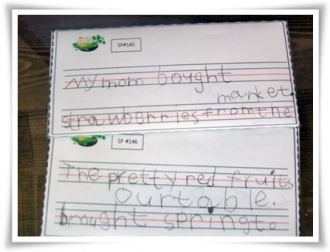 SP#145
My mom bought
market.
strawberries from the
SP #146
The pretty red fruits
our table.
brought spring to